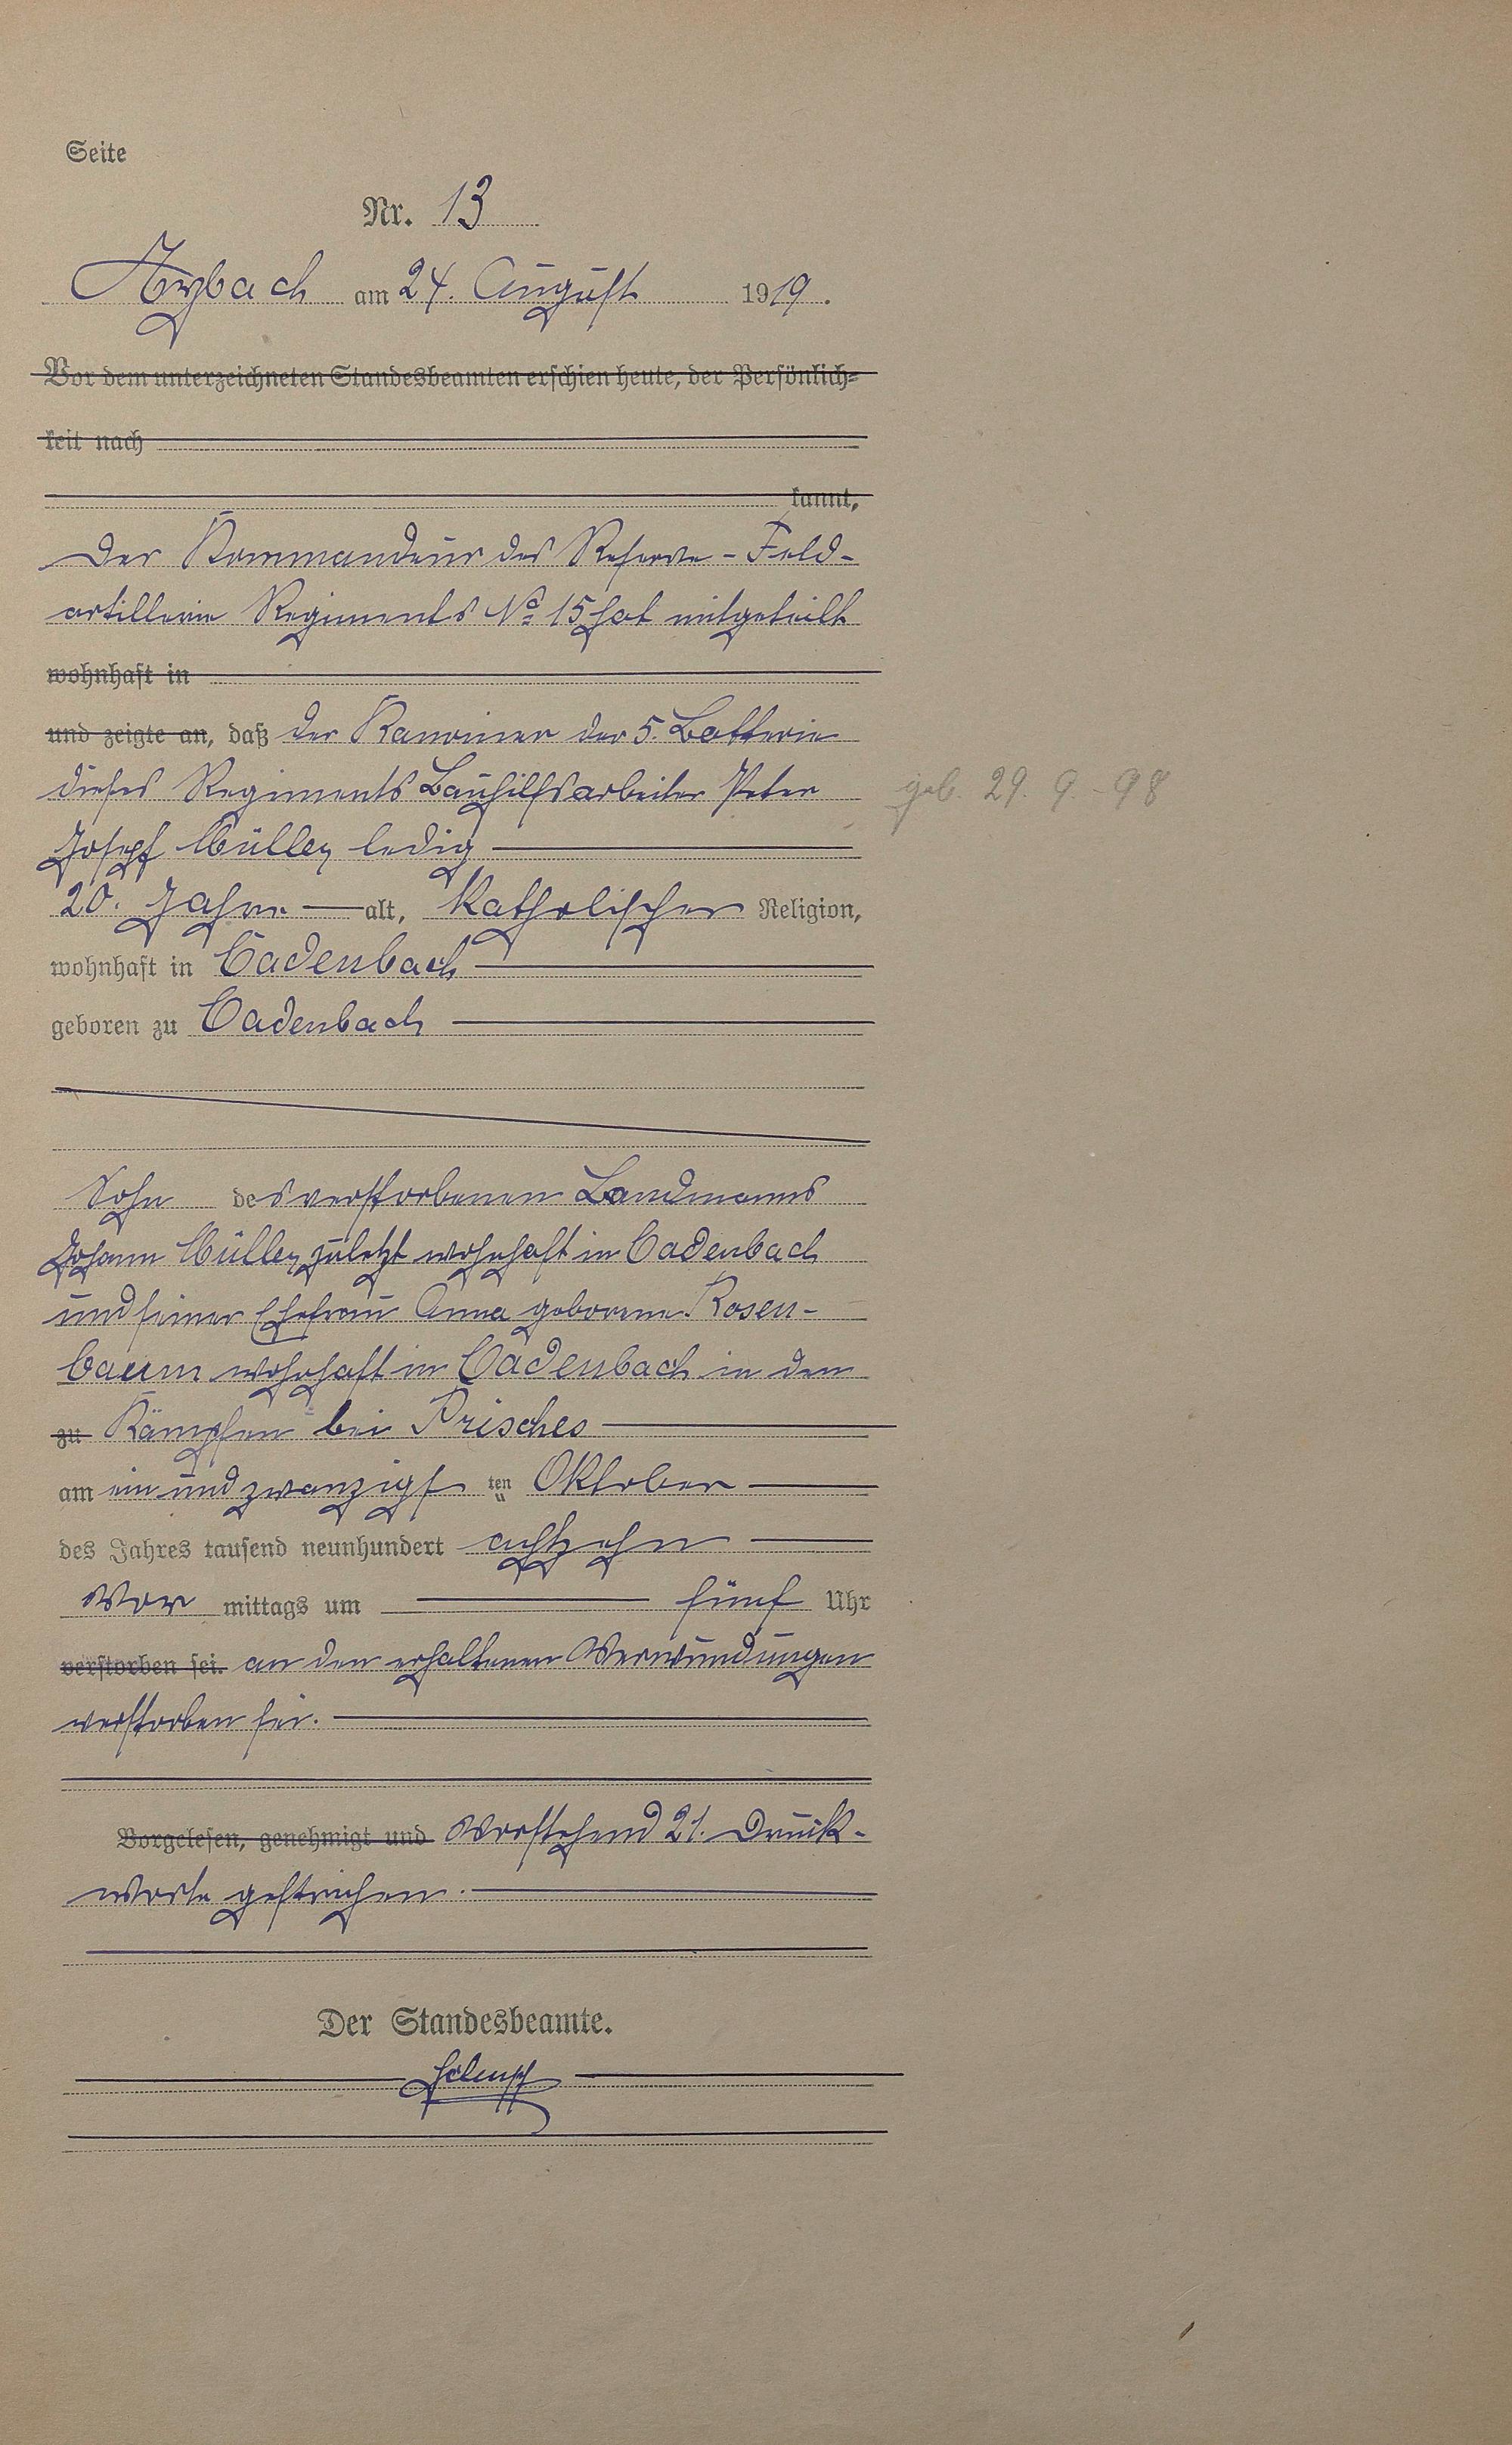 Seite
Nr. 13
Arzbach am 24. August 1919.
Vor dem unterzeichneten Standesbeamten erschien heute, der Persönlich=
keit nach
kannt,
Der Kommandeur des Reserve-Feld-
artillerie Regiments No 15 hat mitgeteilt
wohnhaft in
und zeigte an, daß der Kanonier der 5. Batterie
dieses Regiments Bauhilfsarbeiter Peter geb. 29. 9. - 98
Josef Müller, ledig
20. Jahre alt, katholischer Religion,
wohnhaft in Cadenbach
geboren zu Cadenbach
Sohn des verstorbenen Landmanns
Johann Müller, zuletzt wohnhaft in Cadenbach
und seiner Ehefrau Anna geborene Rosen-
baum wohnhaft in Cadenbach in den
zu Kämpfen bei Prisches
am ein und zwanzigsten Oktober
des Jahres tausend neunhundert achtzehn
vor mittags um fünf Uhr
verstorben sei. an den erhaltenen Verwundungen
verstorben sei.
Vorgelesen, genehmigt und Vorstehend 21. Druck-
worte gestrichen.
Der Standesbeamte.